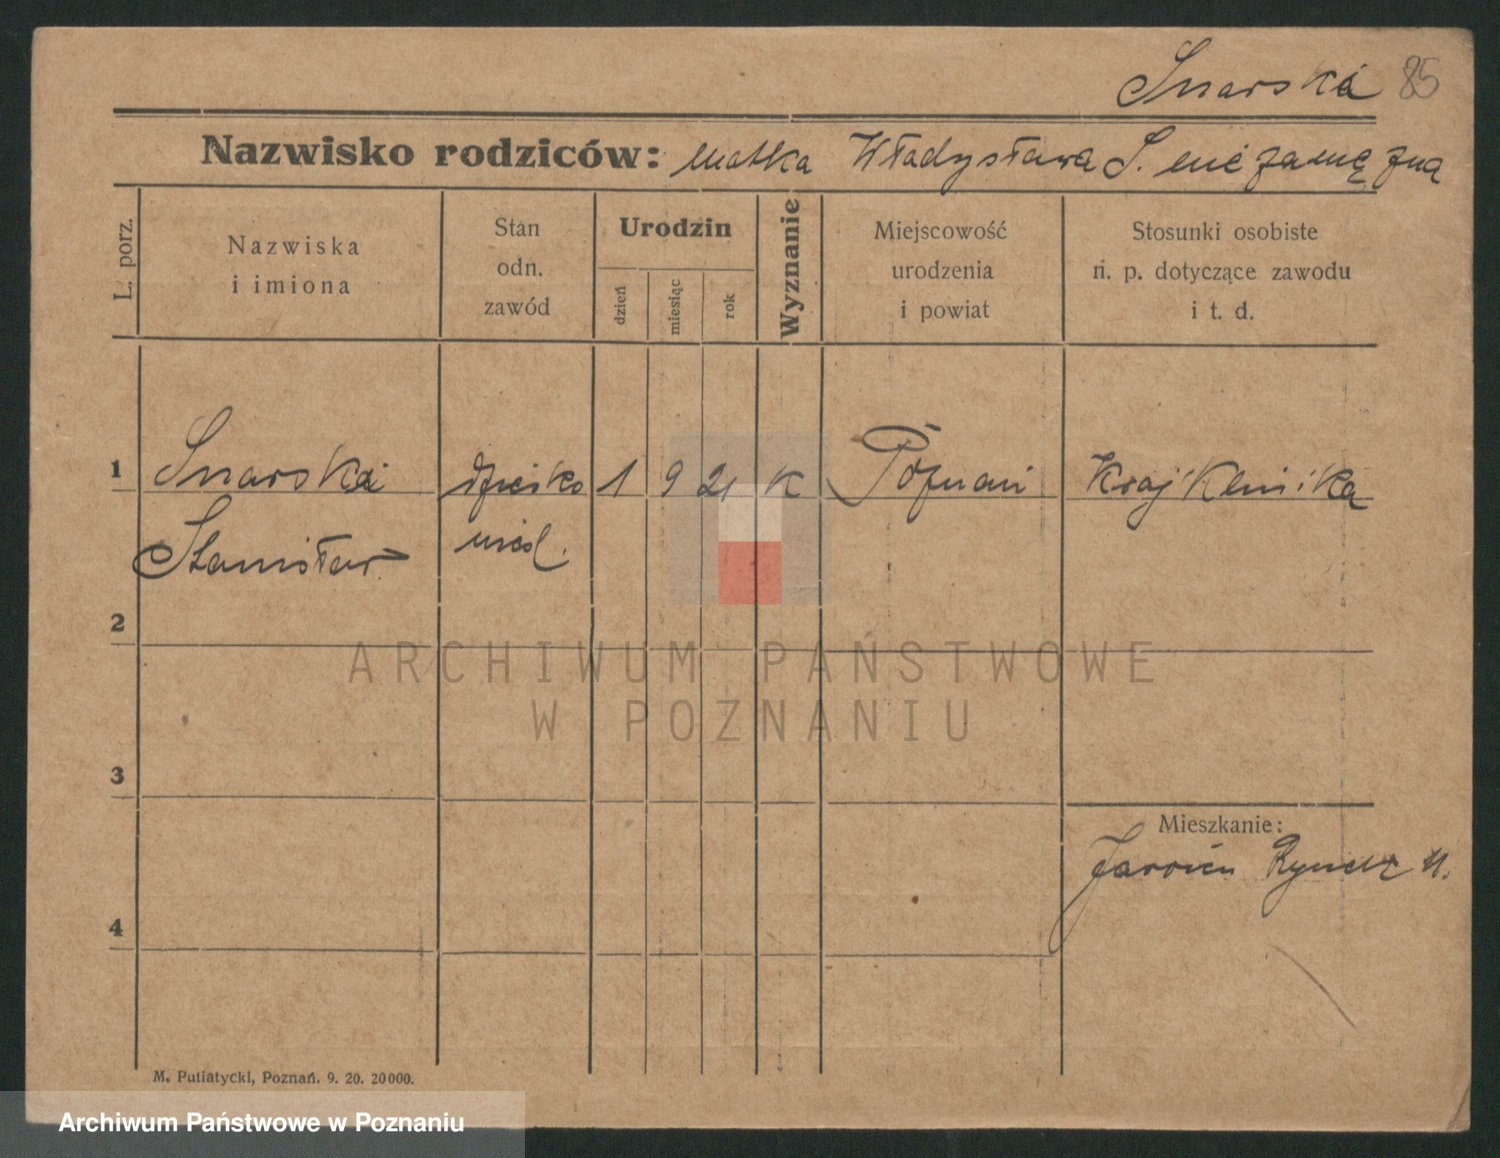 Snarska 85
Nazwisko rodziców: matka Władysława S. niezamężna
L. porz.
Nazwiska
i imiona
Stan
odn.
zawód
Urodzin
dzień
miesiąc
rok
Wyznanie
Miejscowość
urodzenia
i powiat
Stosunki osobiste
n. p. dotyczące zawodu
i t. d.
1 Snarski dziecko 1 9 21 K Poznań Kraj Klinika
Stanisław
2
ARCHIWUM PAŃSTWOWE
W POZNANIU
3
Mieszkanie:
Rynek 11.
4
M. Putiatycki, Poznań. 9. 20. 20000.
Archiwum Państwowe w Poznaniu